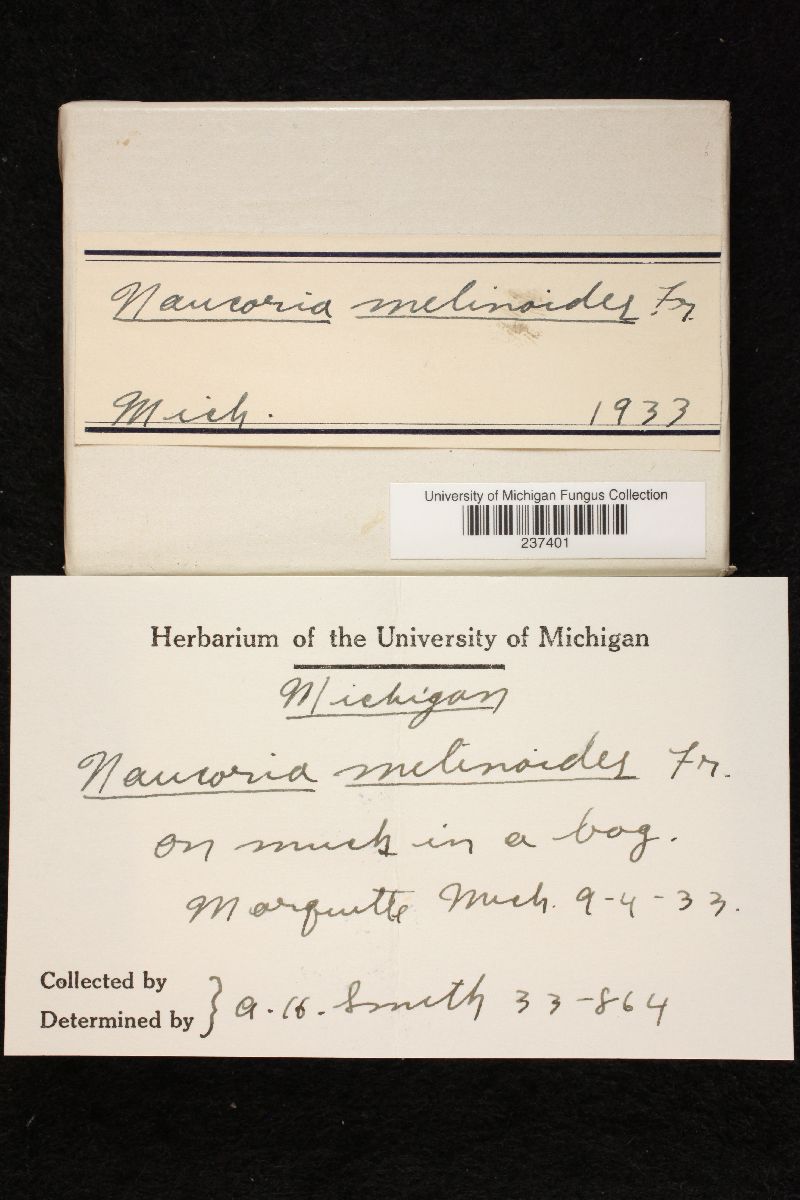 Naucoria melinoides Fr.
Mich. 1933
University of Michigan Fungus Collection
237401
Herbarium of the University of Michigan
Michigan
Naucoria melinoides Fr.
on muck in a bog.
Marquette Mich. 9-4-33.
Collected by
Determined by } A. H. Smith 33-864